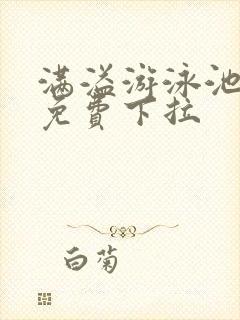 满溢游泳池
免費下拉
白菊